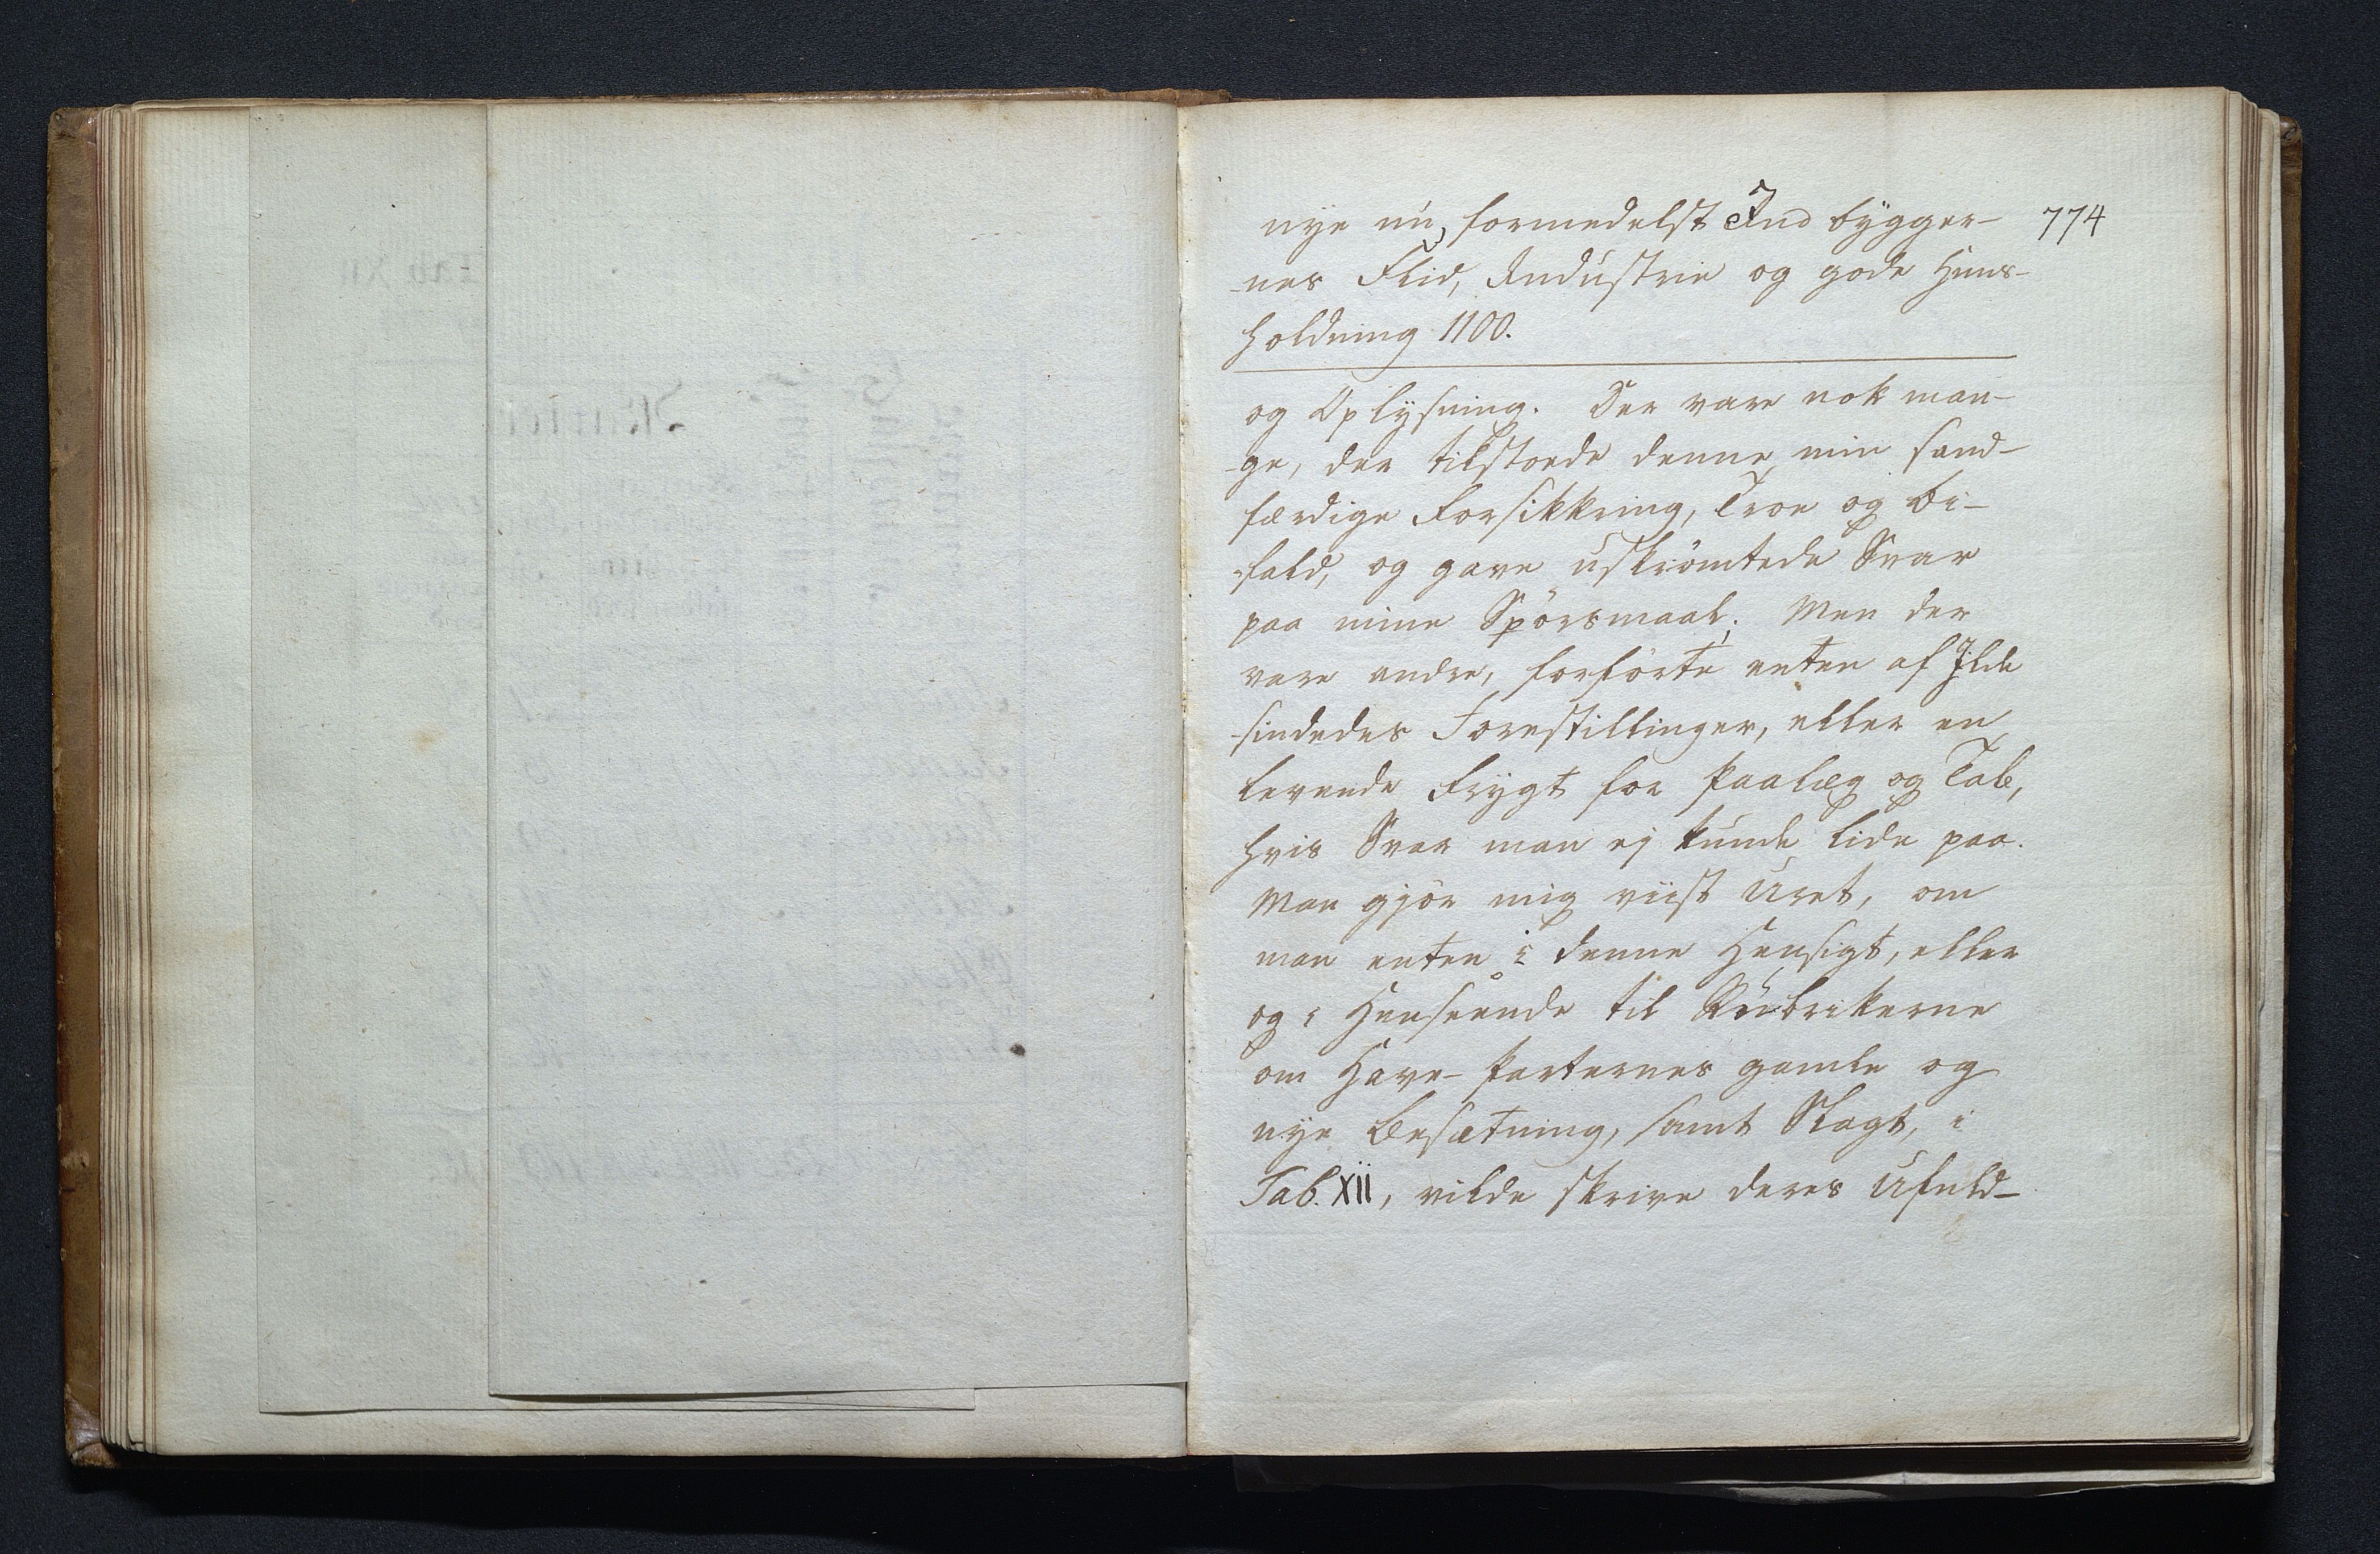 nye nu, formedelst Indbygger-
774
-nes Flid, Industrie og gode Huus-
holdning 1100.
og Oplysning. Der vare nok man-
-ge, der tilstoede denne min sand-
færdige Forsikkring, Troe og Bi-
-fald, og gave uskrömtede Svar
paa mine Spörsmaal; Men der
vare andre, forförte enten af Ilde
-sindedes Forestillinger, eller en
levende Frygt for Paalæg og Tab,
hvis Svar man ej kunde lide paa.
Man gjör mig viist Uret, om
man enten i denne Hensigt, eller
og i Henseende til Rubrikerne
om Have-Parternes gamle og
nye Besætning, samt Slagt, i
Tab. XII, vilde skrive deres Ufuld-